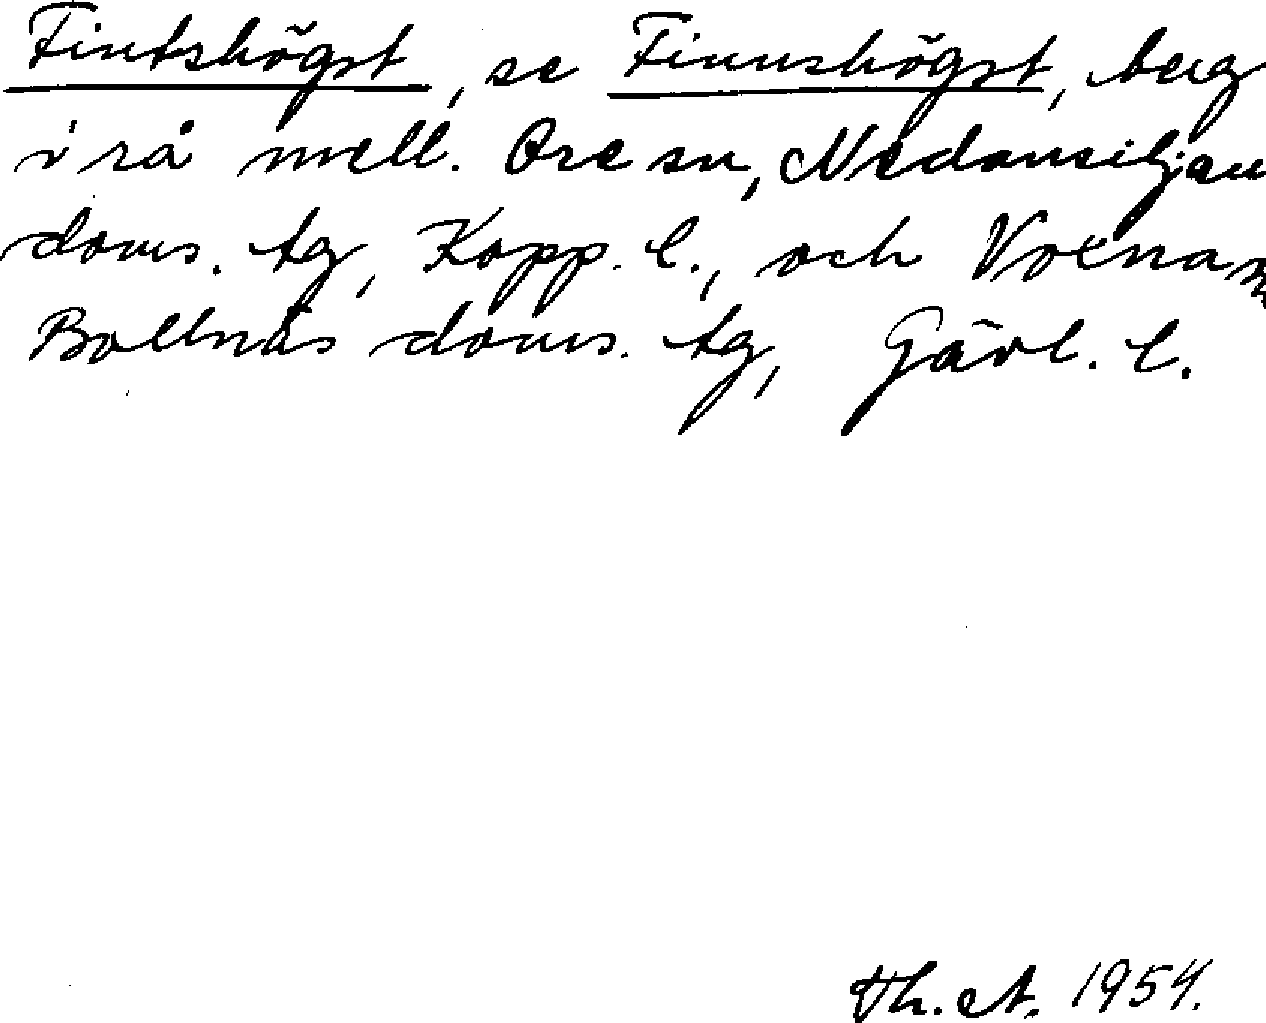 Fintshögst, se Finnshögst, berg
i rå mell. Ore sn, Nedansiljans
doms. tg, Kopp. l., och Voxna sn
Bollnäs doms. tg, Gävl. l.
Th. A. 1954.